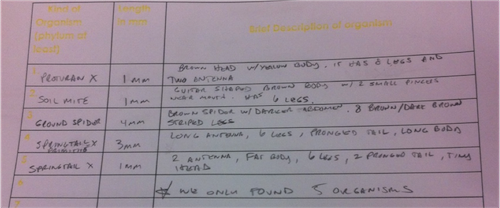 Kind of Length
Organism in mm Brief Description of organism
(phylum at
least)
1 BROWN HEAD W/YELLOW BODY. IT HAS 6 LEGS AND
PROTURAN X 1mm TWO ANTENNA
2 GUITAR SHAPED BROWN BODY W/ 2 SMALL PINCERS
SOIL MITE 1mm NEAR MOUTH. HAS 6 LEGS.
3 BROWN SPIDER W/DARKER ABDOMEN. 8 BROWN/DARK BROWN
GROUND SPIDER 4mm STRIPED LEGS
4 LONG ANTENNA, 6 LEGS, PRONGED TAIL, LONG BODY
SPRINGTAILS X 3mm
5 2 ANTENNA, FAT BODY, 6 LEGS, 2 PRONGED TAIL, TINY
SPRINGTAIL X 1mm HEAD
6 WE ONLY FOUND 5 ORGANISMS
7